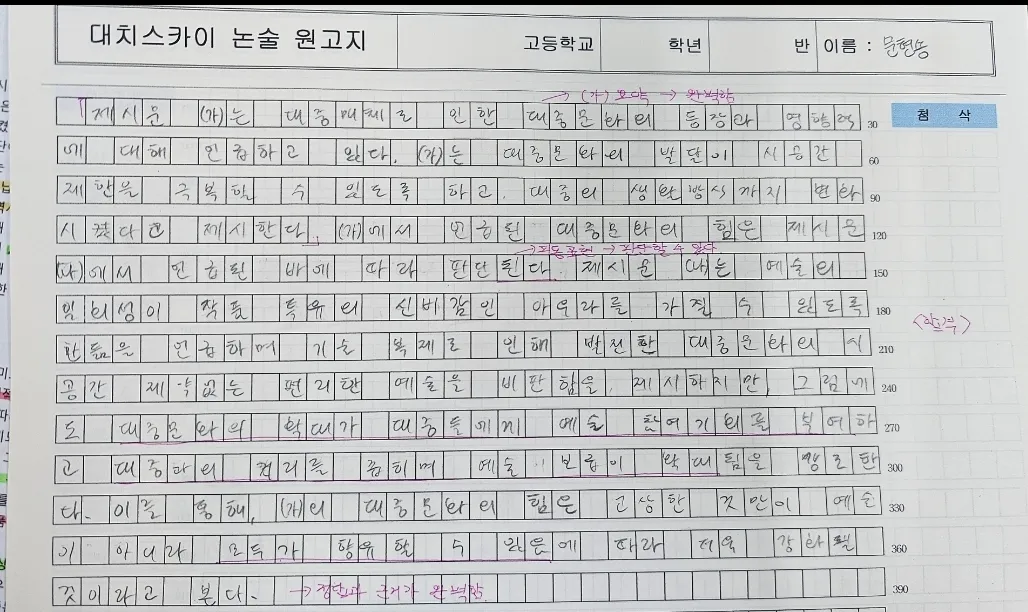 대치스카이 논술 원고지 고등학교 학년 반 이름 :
→ (가) 요약 → 완벽함
제시문 (가)는 대중매체로 인한 대중문화의 등장과 영향력 30
첨 삭
에 대해 언급하고 있다. (가)는 대중문화의 발달이 시공간 60
제한을 극복할 수 있도록 하고, 대중의 생활방식까지 변화 90
시켰다고 제시한다. (가)에서 언급된 대중문화의 힘은 제시문 120
→ 피동표현 → 판단할 수 있다
(나)에서 언급된 바에 따라 판단된다. 제시문 (나)는 예술의 150
일회성이 작품 특유의 신비감인 아우라를 가질 수 있도록 180
함을 언급하며 기술 복제로 인해 발전한 대중문화의 시 210
공간 제약없는 편리한 예술을 비판함을 제시하지만, 그럼에 240
도 대중문화의 확대가 대중들에게 예술 참여기회를 부여하 270
고 대중과의 거리를 좁히며 예술 보급이 확대됨을 행로한 300
다. 이를 통해, (가)의 대중문화의 힘은 고상한 것만이 예술 330
이 아니라 모두가 향유할 수 있음에 따라 더욱 강화될 360
것이라고 본다. → 판단과 근거가 완벽함 390